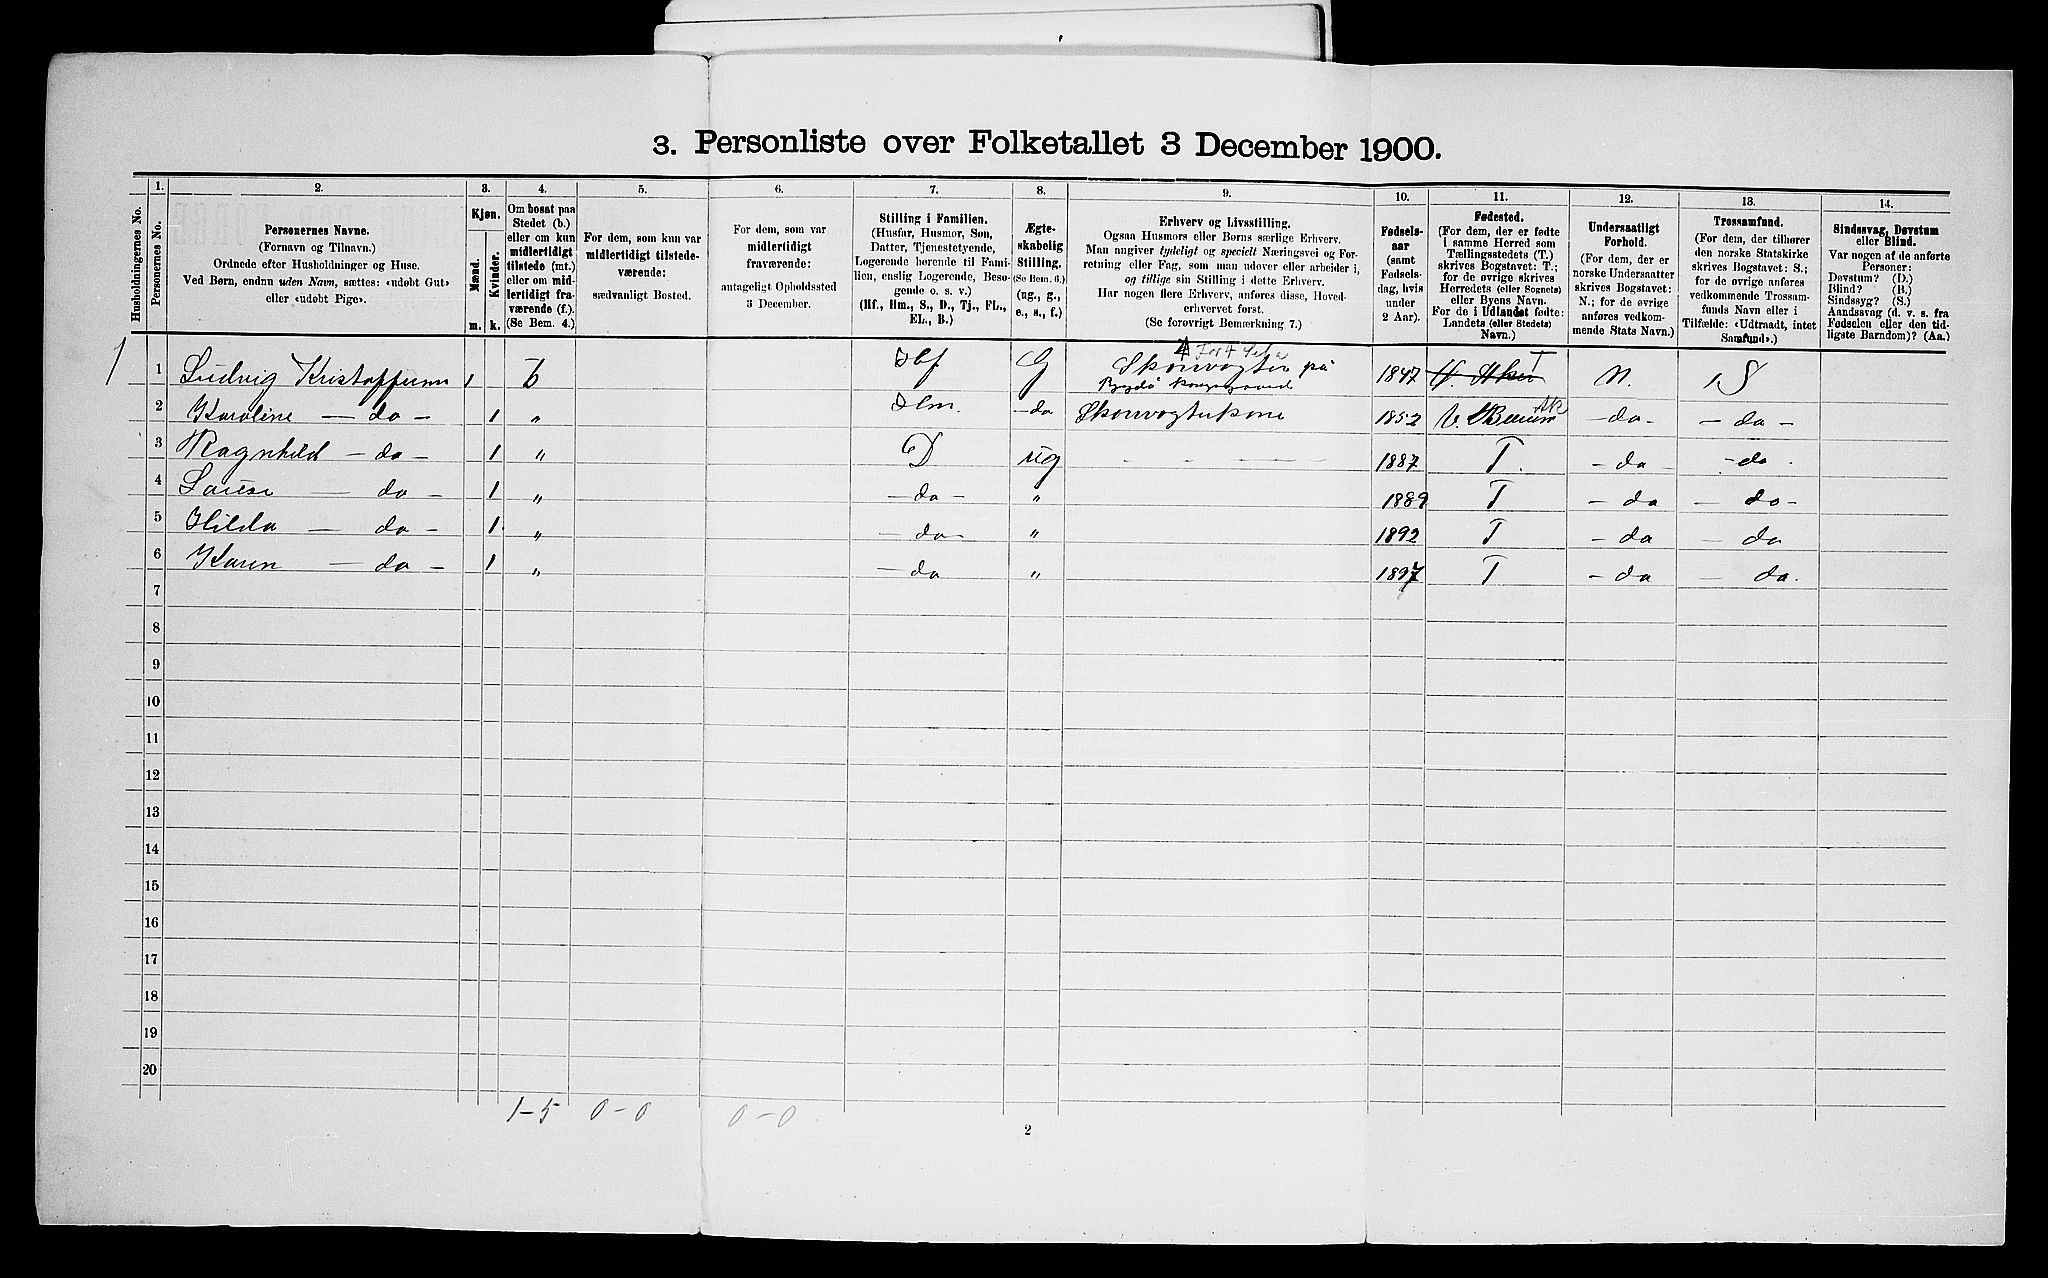 3. Personliste over Folketallet 3 December 1900.
Husholdningernes No.
1.
Personernes No.
2.
Personernes Navne.
(Fornavn og Tilnavn.)
Ordnede efter Husholdninger og Huse.
Ved Børn, endnu uden Navn, sættes: «udøbt Gut»
eller «udøbt Pige».
3.
Kjøn.
Mænd.
Kvinder.
m.
k.
4.
Om bosat paa
Stedet (b.)
eller om kun
midlertidigt
tilstede (mt.)
eller om mid-
lertidigt fra-
værende (f.).
(Se Bem. 4.)
5.
For dem, som kun var
midlertidigt tilstede-
værende:
sædvanligt Bosted.
6.
For dem, som var
midlertidigt
fraværende:
antageligt Opholdssted
3 December.
7.
Stilling i Familien.
(Husfar, Husmor, Søn,
Datter, Tjenestetyende,
Logerende hørende til Fami-
lien, enslig Logerende, Besø-
gende o. s. v.)
(Hf., Hm., S., D., Tj., FL.,
EL., B.)
8.
Ægte-
skabelig
Stilling.
(Se Bem. 6.)
(ug., g.,
e., s., f.)
9.
Erhverv og Livsstilling.
Ogsaa Husmors eller Børns særlige Erhverv.
Man angiver tydeligt og specielt Næringsvei og For-
retning eller Fag, som man udover eller arbeider i,
og tillige sin Stilling i dette Erhverv.
Har nogen flere Erhverv, anføres disse, Hoved-
erhvervet først.
(Se forøvrigt Bemærkning 7.)
10.
Fødsels-
aar
(samt
Fødsels-
dag, hvis
under
2 Aar).
11.
Fødested.
(For dem, der er fødte
i samme Herred som
Tællingsstedets (T.)
skrives Bogstavet: T.;
for de øvrige skrives
Herredets (eller Sognets)
eller Byens Navn.
For de i Udlandet fødte:
Landets (eller Stedets)
Navn.)
12.
Undersaatligt
Forhold.
(For dem, der er
norske Undersaatter
skrives Bogstavet:
N.; for de øvrige
anføres vedkom-
mende Stats Navn.)
13.
Trossamfund.
(For dem, der tilhører
den norske Statskirke
skrives Bogstavet: S.;
for de øvrige anføres
vedkommende Trossam-
funds Navn eller i
Tilfælde: «Udtraadt, intet
Samfund».)
14.
Sindssvag, Døvstum
eller Blind.
Var nogen af de anførte
Personer:
Døvstum? (D.)
Blind? (B.)
Sindssyg? (S.)
Aandssvag (d. v. s. fra
Fødselen eller den tid-
ligste Barndom)? (Aa.)
1 1 Ludvig Kristoffersen 1 b Hf G Skovvogter på 1847 V. Aker T N. S
Bygdø Kongsgaard
2 Karoline — do — 1 „ Hm. — do Skovvogterkone 1852 V. Bærum Ak — do — — do —
3 Ragnhild — do — 1 „ D ug — — — — 1887 T. — do — — do .
4 Louise — do — 1 „ — do — „ 1889 T — do — do —
5 Hilda — do — 1 „ — do — „ 1892 T — do — do
6 Karen — do — 1 „ — do „ 1897 T — do — do.
7
8
9
10
11
12
13
14
15
16
17
18
19
20
1 – 5 0 – 0 0 – 0
2